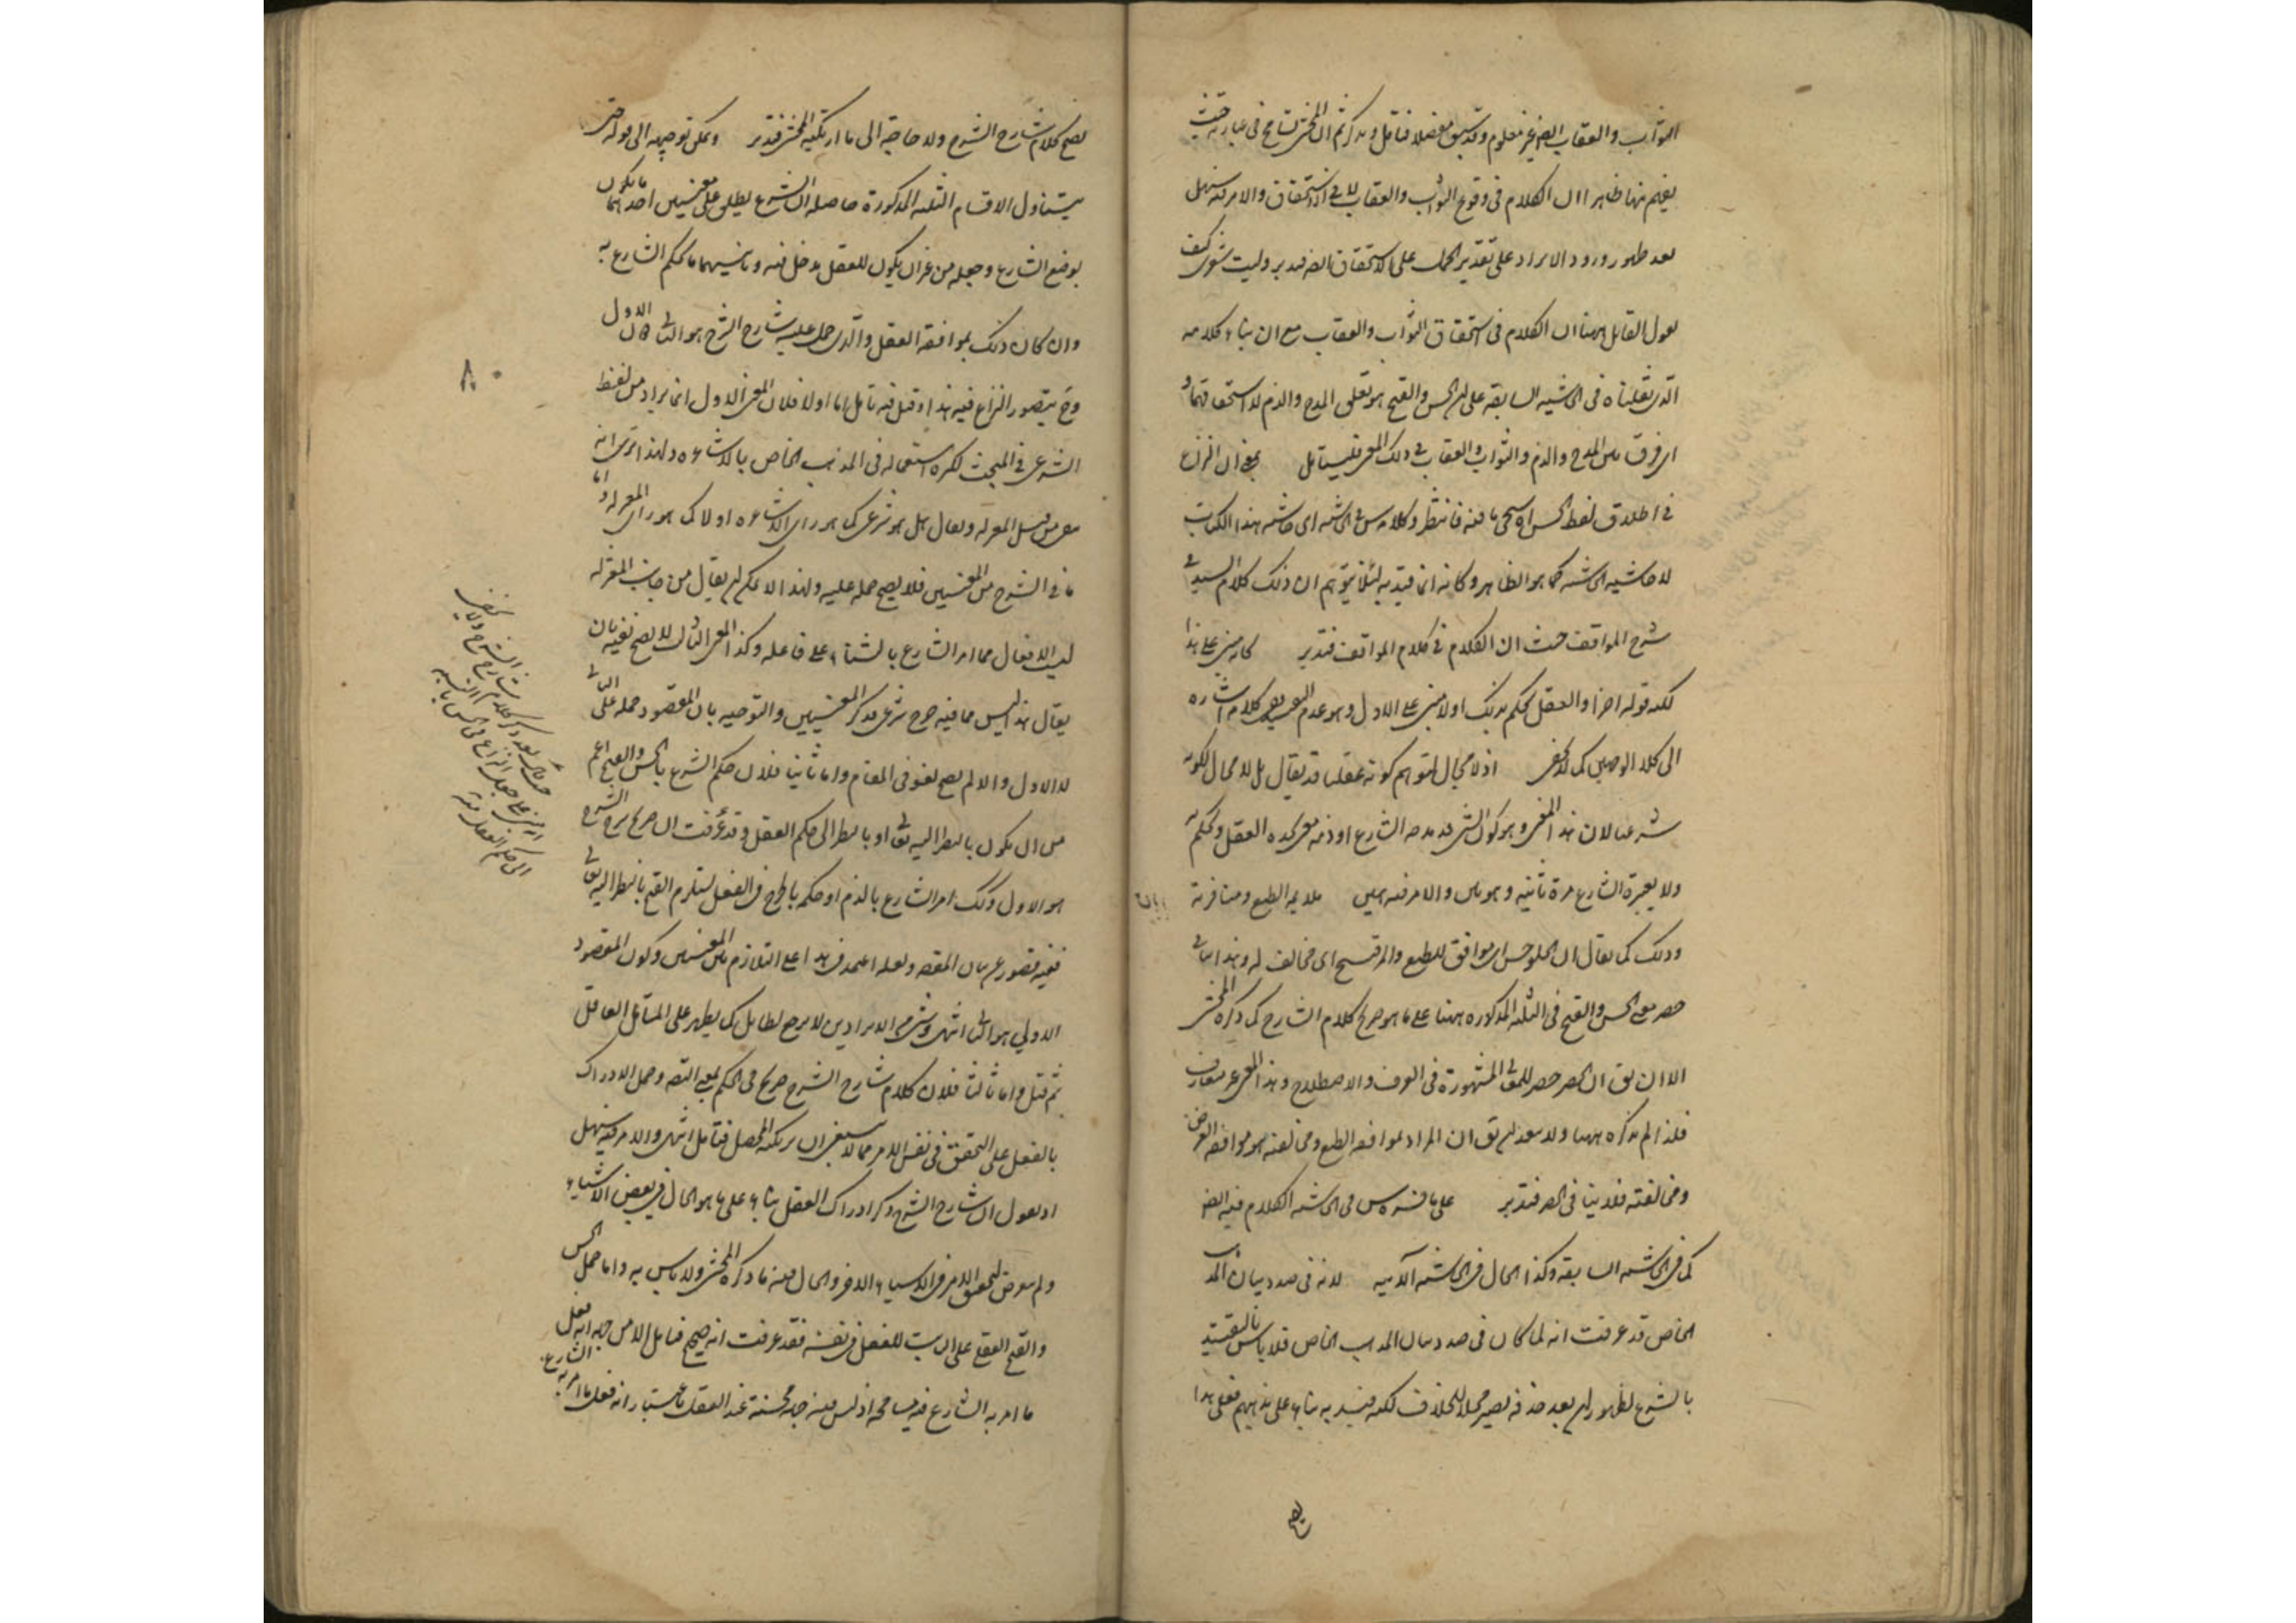 الثواب والعقاب ايضا غير معلوم وقد سبق مفصلا فتامل وتذكر ثم ان المحشى تسامح فى عبارته حيث
يفهم منها ظاهرا ان الكلام فى وقوع الثواب والعقاب لا فى الاستحقاق والامر فيه سهل
بعد ظهور ورود الايراد على تقدير الحمل على الاستحقاق ايضا فتدبر وليت شعرى كيف
يقول القائل ههنا ان الكلام فى استحقاق الثواب والعقاب مع ان بناء كلامه
الذى نقلناه فى الحاشية السابقة على ان الحسن والقبح هو تعلق المدح والذم لا استحقاقهما و
اى فرق بين المدح والذم والثواب والعقاب فى ذلك المعنى فليتامل يعنى ان النزاع
فى اطلاق لفظ الحسن فانتظر وكلامه س فى الحاشية اى حاشية هذا الكتاب
لا حاشية الحاشية كما هو الظاهر وكانه انما قيد به لئلا يتوهم ان ذلك كلام السيد فى
شرح المواقف حيث ان الكلام فى كلام المواقف فتدبر كانه مبنى على هذا
لكنه قوله اخرا والعقل يحكم بذلك اولا مبنى على الاول وهو عدم كلام اشاره
الى كلا الوجهين كما لا يخفى اذ لا مجال لتوهم كونه عقليا قد يقال بل لا مجال لكونه
شرعيا لان هذا المعنى وهو كون الشى قد مدحه الشارع او ذمه العقل ويحكم به
ولا يعتبره الشارع مرة ثانية وهو بين والامر فيه هين ملايمة الطبع ومنافرته
وذلك كما يقال ان الحلو حسن اى موافق للطبع والمر قبيح اى مخالف له وهذا ينافى
حصر معنى الحسن والقبح فى الثلثة المذكورة ههنا على ما هو صريح كلام الشارح كما ذكره المحشى
الا ان يق ان الحصر حصر للمعانى المشهورة فى العرف والاصطلاح وهذا المعنى غير متعارف
فلذا لم يذكره ههنا ولا يبعد ان يق ان المراد بموافقة الطبع ومخالفته هو موافقة الغرض
ومخالفته فلا ينافى الحصر فتدبر على ما فسره س فى الحاشية الكلام فيه ايضا
كما فى الحاشية السابقة وكذا الحال فى الحاشية الآتية لانه فى صدد بيان المذهب
الخاص قد عرفت انه لما كان فى صدد بيان المذهب الخاص فلا باس بالتقييد
بالشرع لظهور ان بعد حذفه يصير محلا للخلاف لكنه قيد به بناء على مذهبهم فعلى هذا
يصح
يصح كلام شارح الشرح ولا حاجة الى ما ارتكبه المحشى فتدبر ويمكن توجيهه الى قوله حتى
يتناول الاقسام الثلثة المذكورة حاصله ان الشرع يطلق على معنيين احدهما ما يكون
بوضع الشارع وجعله من غير ان يكون للعقل مدخل فيه وثانيهما ما يحكم الشارع به
وان كان ذلك بموافقة العقل والذى حمل عليه شارح الشرح هو الثانى لا الاول
وح يتصور النزاع فيه هذا وقيل فيه تامل اما اولا فلان المعنى الاول انما يراد من لفظ
الشرعى فى المبحث لكثرة استعماله فى المذهب الخاص بالاشاعرة ولهذا ترى انه
من قبل المعتزلة ويقال هل هو شرعى كما هو راى الاشاعرة اولا كما هو راى المعتزلة واما
ما فى الشرح من المعنيين فلا يصح حمله عليه ولهذا لا يمكن ان يقال من جانب المعتزلة
ليت الافعال مما امر الشارع بالثناء على فاعله وكذا المعنى الثالث لا يصح نفيه بان
يقال هذا ليس مما فيه حرج شرعى فذكر المعنيين والتوجيه بان المقصود حمله على الثانى
لا الاول والا لم يصح لغو فى المقام واما ثانيا فلان حكم الشرع بالحسن والقبح اعم
من ان يكون بالنظر اليه تعالى او بالنظر الى حكم العقل وقد عرفت ان صريح شرح الشرح
هو الاول وذلك امر الشارع بالذم او حكمه بالحرج فى الفعل يستلزم القبح بالنظر اليه تعالى
ففيه قصور عن بيان المقصود ولعله اعتمد فى هذا على التلازم بين المعنيين وكون المقصود
الاولى هو الثانى انتهى وشى من الايرادين لا يرجع لطايل كما يظهر على المتامل العاقل
ثم قيل واما ثالثا فلان كلام شارح الشرح صريح فى الحكم بمعنى القضاء وحمل الادراك
بالفعل على التحقق فى نفس الامر مما لا ينبغى ان يرتكبه المحصل فتامل انتهى والامر فيه سهل
اذ يقول ان شارح الشرح ذكر ادراك العقل بناء على ما هو الحال فى بعض الاشياء
ولم يتعرض لتحقق الامر فى الاشياء الاخر والحال فيه ما ذكره المحشى ولا باس به واما حمل الحسن
والقبح العقلى على الثابت للفعل فى نفسه فقد عرفت انه صحيح فتامل الامن جهة انه فعل
ما امر به الشارع فيه مسامحة اذ ليس فيه جهة محسنة عند العقل باعتبار انه فعل ما امر به الشارع
٨٠
حيث قال بعد ذكر كلام شارح الشرح ولا يخفى
انه مبنى على جعل النزاع فى الحسن بالنسبة
الى حكم العقل منه